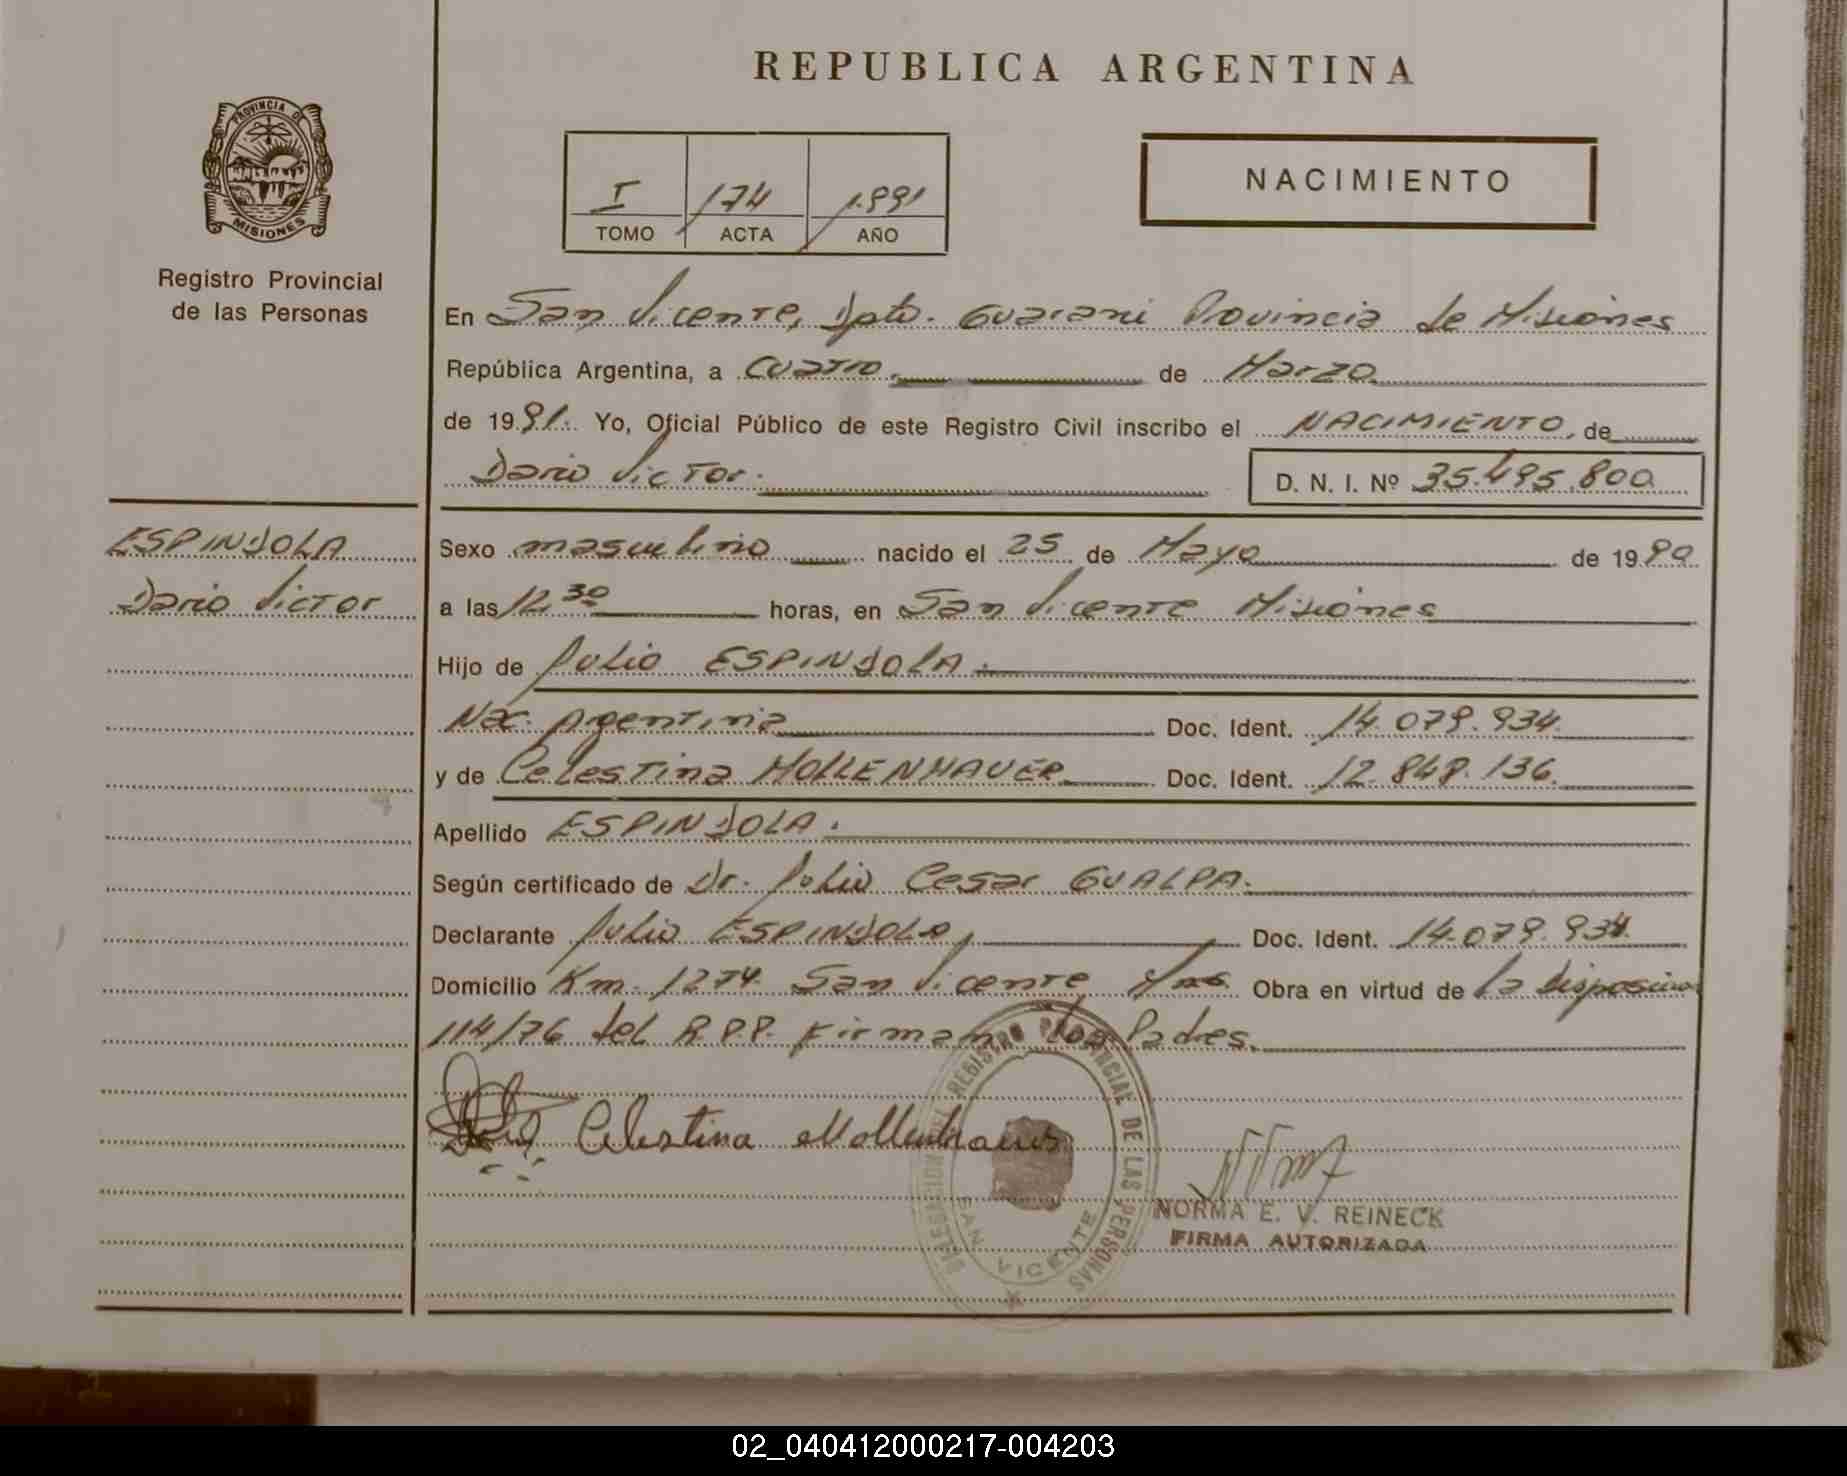 REPUBLICA ARGENTINA
PROVINCIA DE MISIONES
Registro Provincial
de las Personas
I 174 1.991
TOMO ACTA AÑO
NACIMIENTO
En San Vicente, Dpto. Guarani Provincia de Misiones
República Argentina, a Cuatro. de Marzo
de 1991. Yo, Oficial Público de este Registro Civil inscribo el NACIMIENTO, de
Dario Victor.
D. N. I. Nº 35.495.800
ESPINDOLA
Dario Victor
Sexo masculino nacido el 25 de Mayo de 1990
a las 12 30 horas, en San Vicente Misiones
Hijo de Julio ESPINDOLA.
Nac. Argentina Doc. Ident. 14.079.934.
y de Celestina MOLLENHAUER Doc. Ident. 12.848.136.
Apellido ESPINDOLA.
Según certificado de Dr. Julio Cesar GUALPA.
Declarante Julio ESPINDOLA, Doc. Ident. 14.079.934.
Domicilio Km. 1274 San Vicente Mnes. Obra en virtud de la Disposicion
114/76 del R.P.P. Firman los Padres.
Celestina Mollenhauer
DELEGACION REGISTRO PROVINCIAL DE LAS PERSONAS
SAN VICENTE
NORMA E. V. REINECK
FIRMA AUTORIZADA
02_040412000217-004203